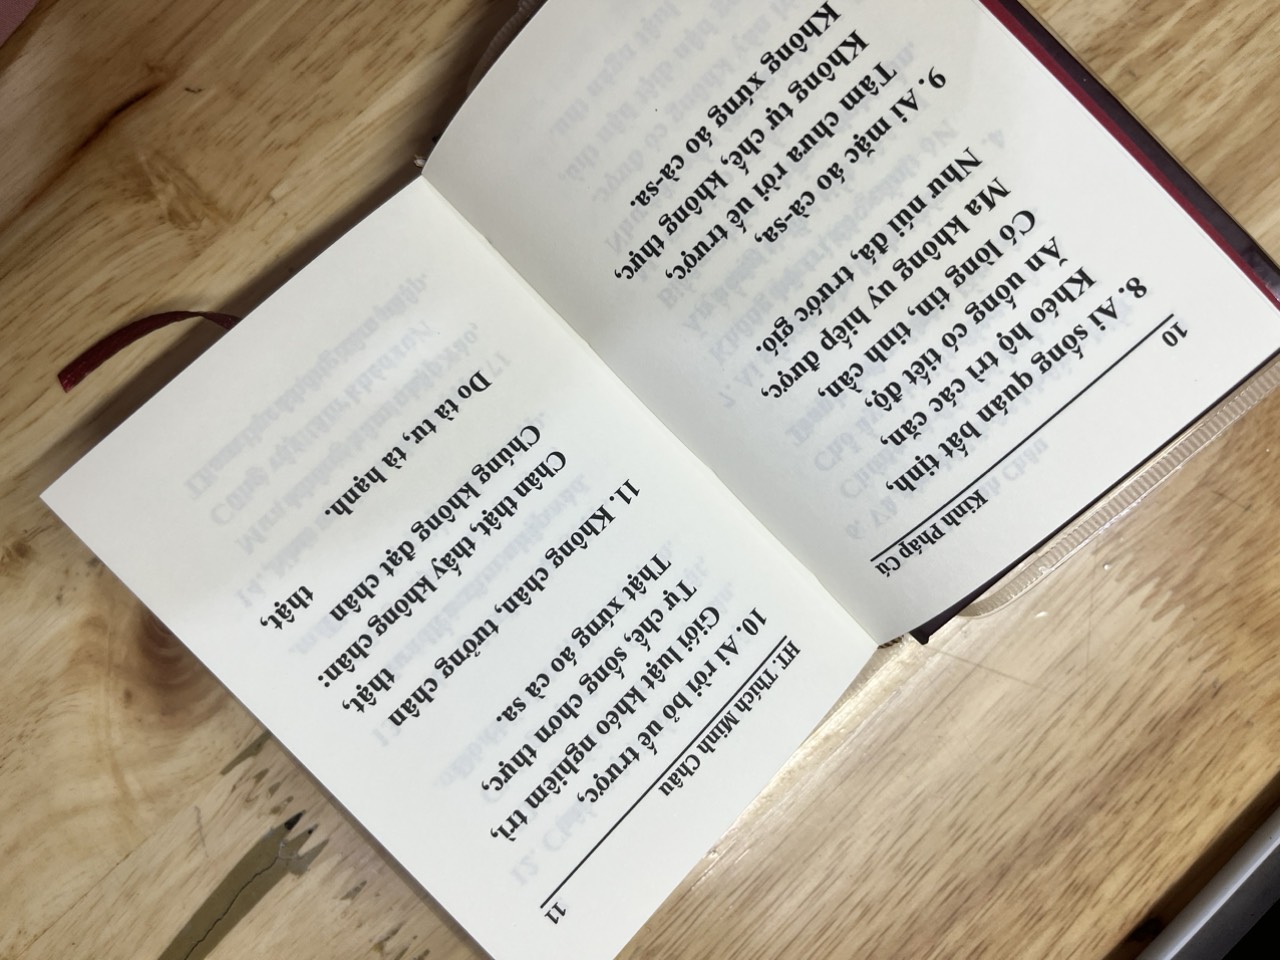 10
Kinh Pháp Cú
8. Ai sống quán bất tịnh,
Khéo hộ trì các căn,
Ăn uống có tiết độ,
Có lòng tin, tinh cần,
Ma không uy hiếp được,
Như núi đá, trước gió.
9. Ai mặc áo cà-sa,
Tâm chưa rời uế trược,
Không tự chế, không thực,
Không xứng áo cà-sa.
HT. Thích Minh Châu
11
10. Ai rời bỏ uế trược,
Giới luật khéo nghiêm trì,
Tự chế, sống chơn thực,
Thật xứng áo cà sa.
11. Không chân, tưởng chân
thật,
Chân thật, thấy không chân:
Chúng không đạt chân
thật,
Do tà tư, tà hạnh.